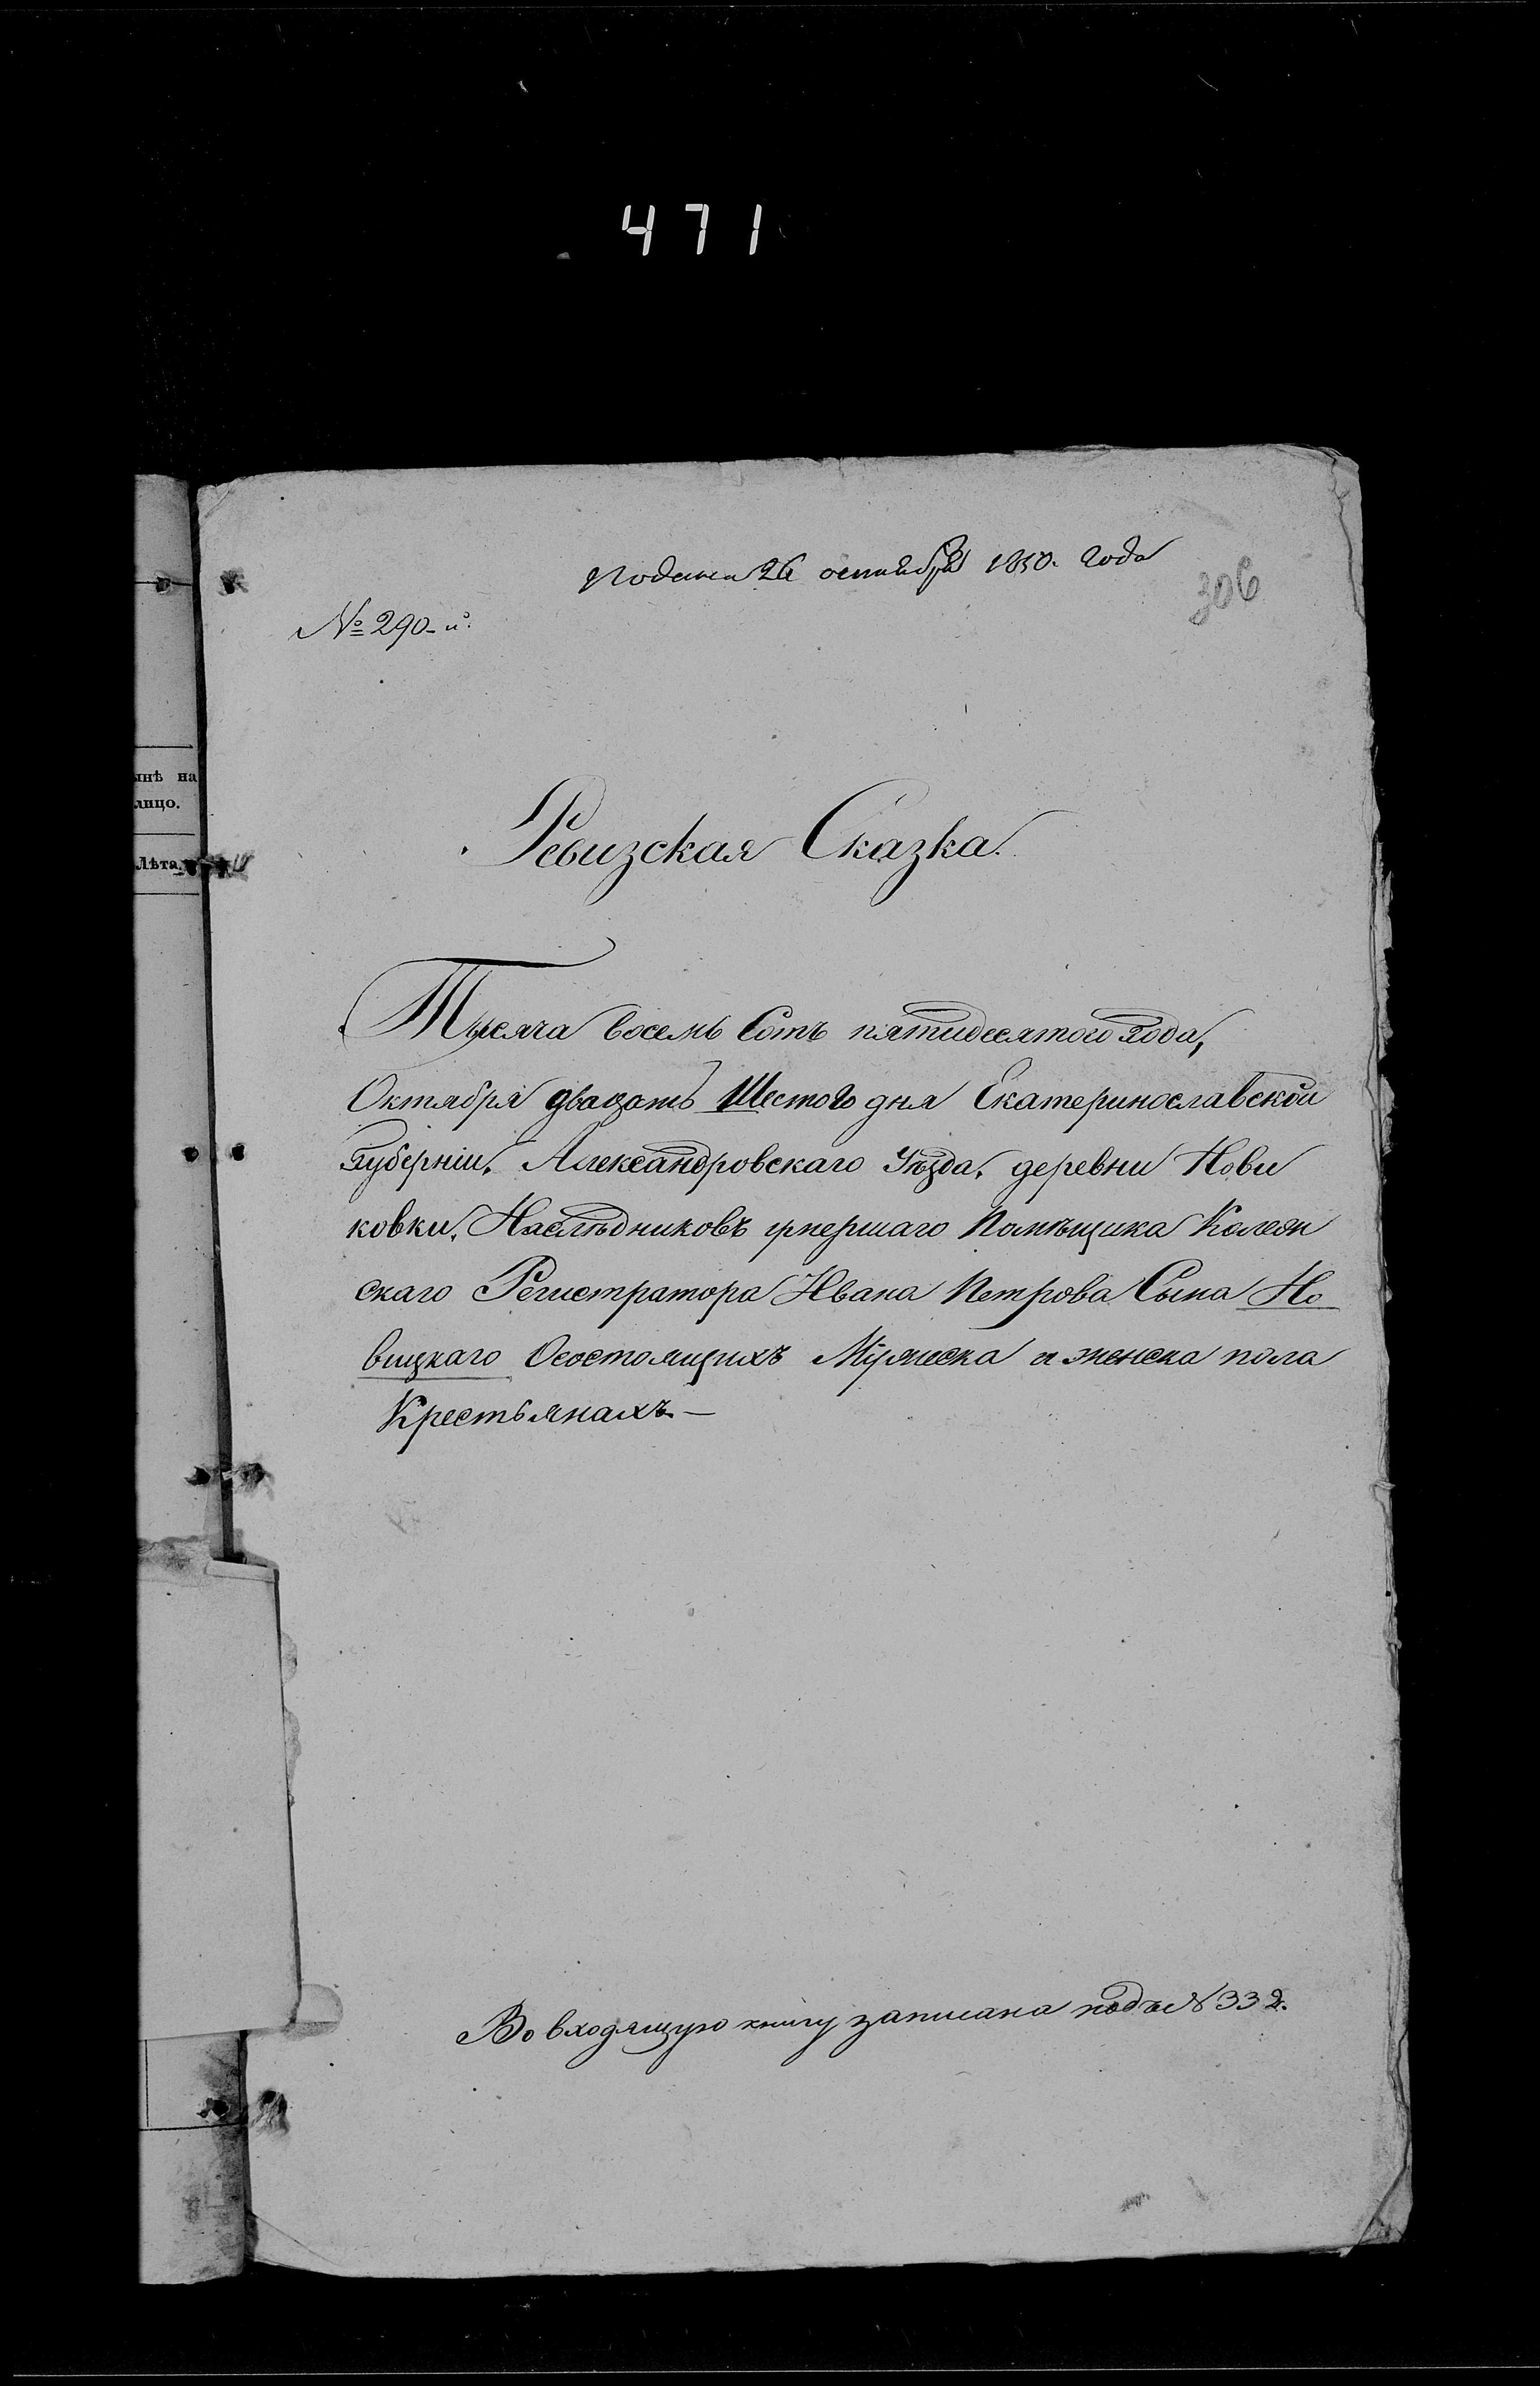 471
Подана 26 октября 1850. Года
306
№ 290-й.
ынѣ на
лицо.
Лѣта.
Ревизская Сказка.
Тысяча восемь Сотъ пятидесятого года,
Октября двацать Шестого дня Екатеринославской
Губерніи, Александровскаго Уѣзда, деревни Нови
ковки, Наслѣдниковъ умершаго Помѣщика Колеж
скаго Регистратора Ивана Петрова Сына Но
вицкаго Осостоящихъ Мужеска и женска пола
Крестьянахъ.—
Во входящую книгу записана подъ № 332.